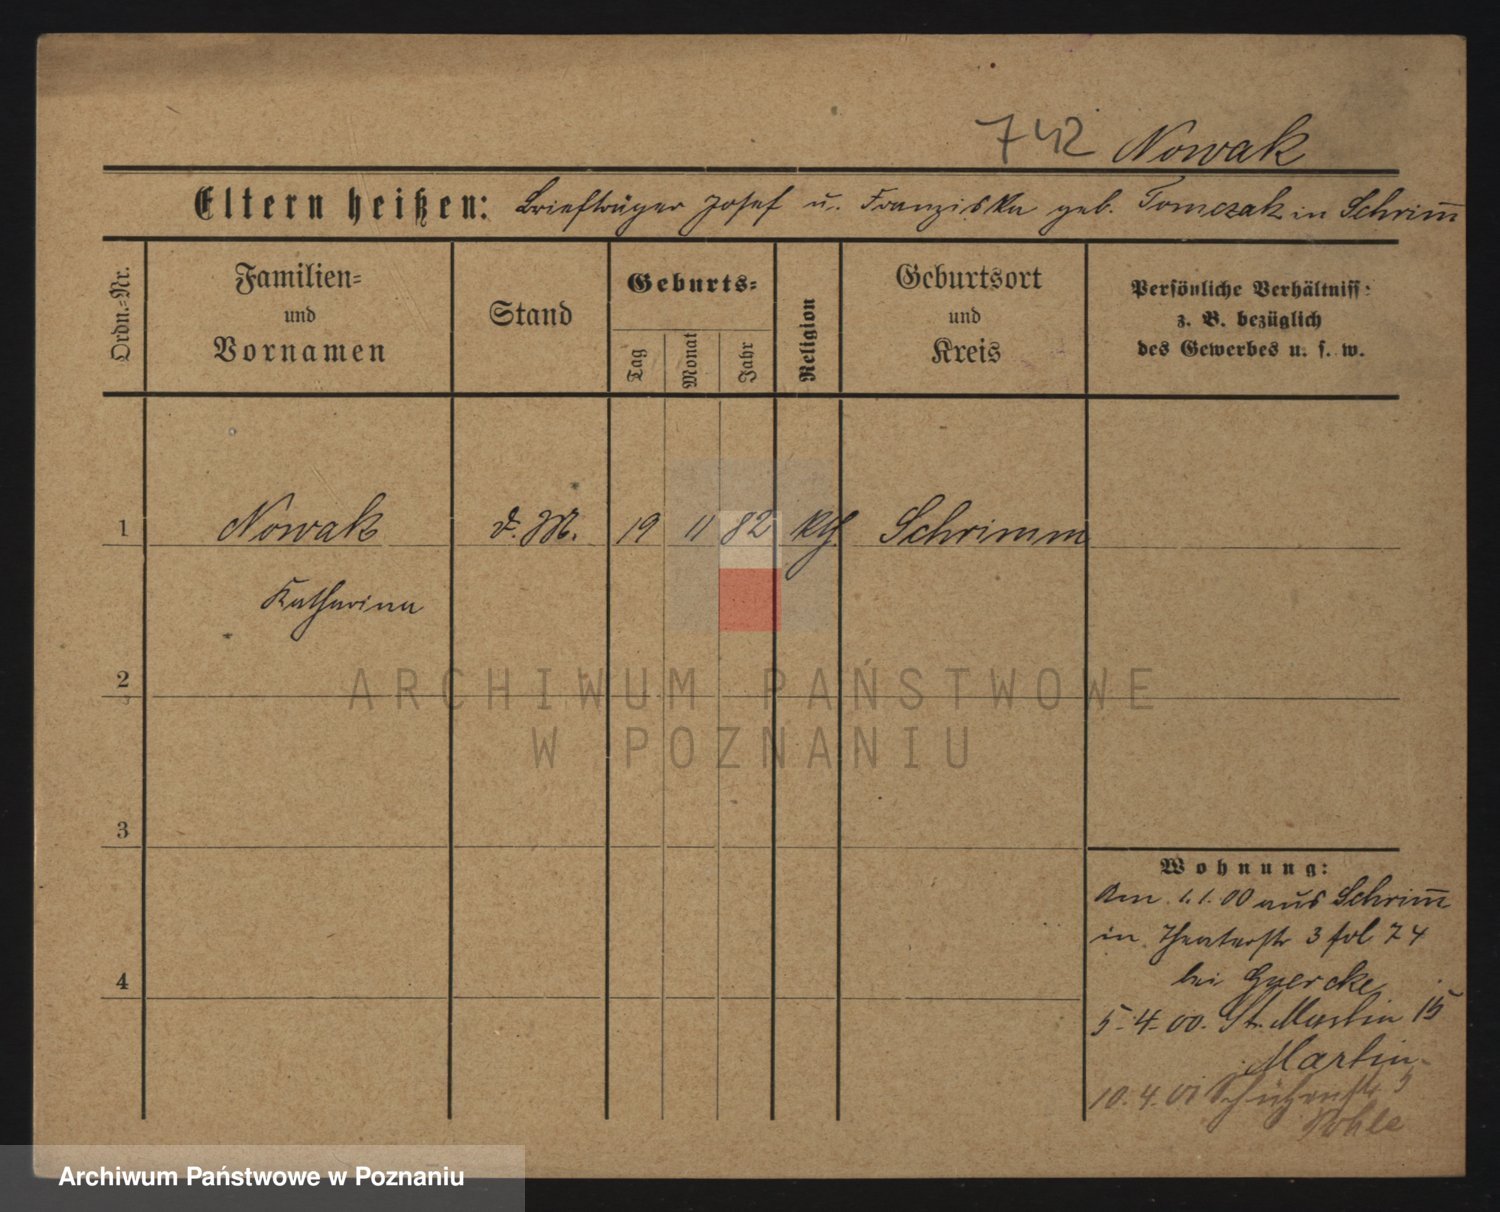 742 Nowak
Eltern heißen: Briefträger Josef u. Franziska geb. Tomczak in Schrim̅
Ordn.-Nr.
Familien-
und
Vornamen
Stand
Geburts-
Tag
Monat
Jahr
Religion
Geburtsort
und
Kreis
Persönliche Verhältniss:
z. B. bezüglich
des Gewerbes u. s. w.
1 Nowak d. M. 19 11 82 kth. Schrimm
Katharina
2
ARCHIWUM PAŃSTWOWE
W POZNANIU
3
4
Wohnung:
Am 1.1.00 aus Schrim̅
in Theaterstr 3 fol 74
bei
5-4-00. St. Martin 15
Martin
10.4.01 Schützenstr 3
Archiwum Państwowe w Poznaniu